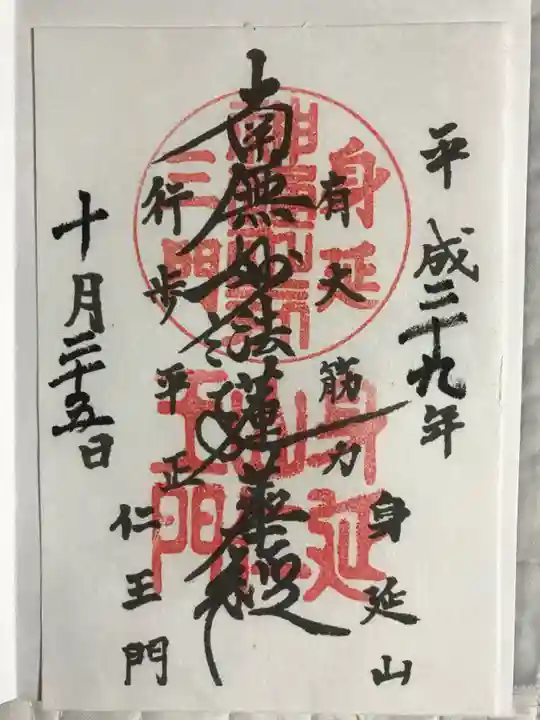 平成二十九年
身延山
有大筋力
南無妙法蓮華経
行歩平正
仁王門
十月二十五日
身延
三門
身延山